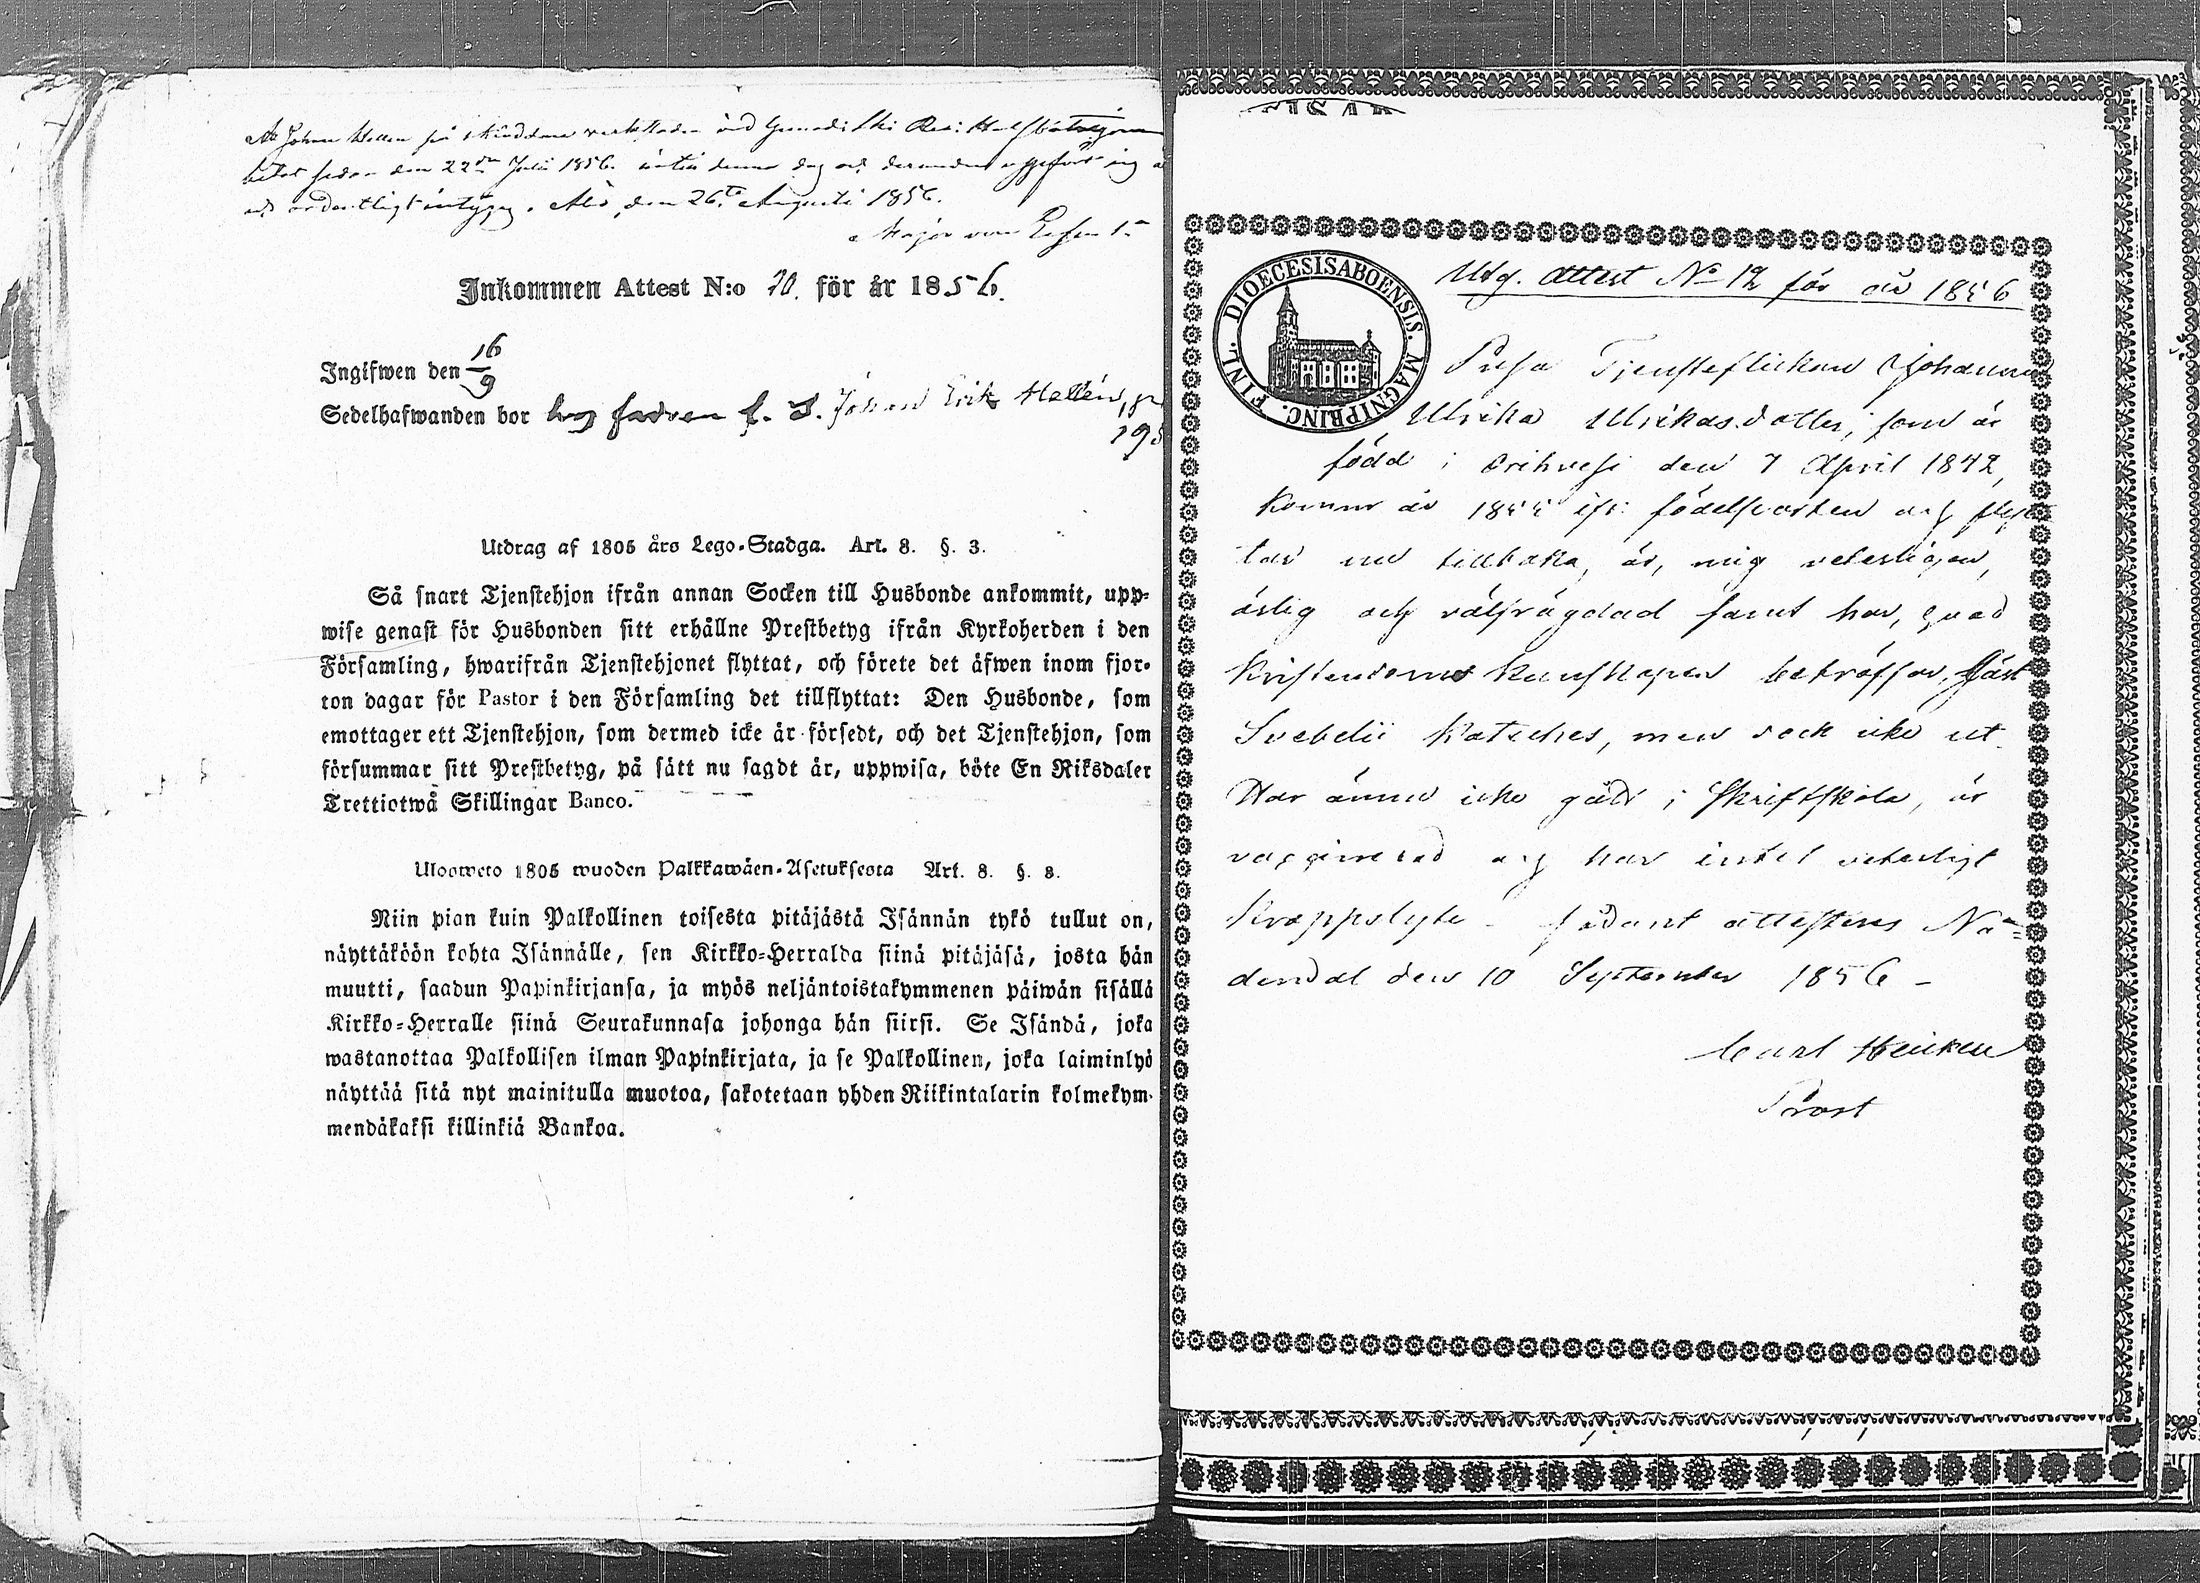 At Johan Hellen på skuddane verkstaden vid
betat sedan den 22dra Juli 1856. intill denna dag och
och ordentligt intygas. Åbo, den 26te Augusti 1856.
Major von
Inkommen Attest N:o 70. för år 1856.
Ingifwen den 16/9
Sedelhafwanden bor hos fadren f. d. Johan Erik Hellén,
195
Utdrag af 1805 års Lego-Stadga. Art. 8. §. 3.
Så snart Tjenstehjon ifrån annan Socken till Husbonde ankommit, upp-
wise genast för Husbonden sitt erhållne Prestbetyg ifrån Kyrkoherden i den
Församling, hwarifrån Tjenstehjonet flyttat, och förete det äfwen inom fjor-
ton dagar för Pastor i den Församling det tillflyttat: Den Husbonde, som
emottager ett Tjenstehjon, som dermed icke är försedt, och det Tjenstehjon, som
försummar sitt Prestbetyg, på sätt nu sagdt är, uppwisa, böte En Riksdaler
Trettiotwå Skillingar Banco.
Ulosweto 1805 wuoden Palkkawäen-Asetuksesta Art. 8. §. 3.
Niin pian kuin Palkollinen toisesta pitäjästä Isännän tykö tullut on,
näyttäköön kohta Isännälle, sen Kirkko-Herralda siinä pitäjäsä, josta hän
muutti, saadun Papinkirjansa, ja myös neljäntoistakymmenen päiwän sisällä
Kirkko-Herralle siinä Seurakunnasa johonga hän siirsi. Se Isändä, joka
wastanottaa Palkollisen ilman Papinkirjata, ja se Palkollinen, joka laiminlyö
näyttää sitä nyt mainitulla muotoa, sakotetaan yhden Riikintalarin kolmekym-
mendäkaksi killinkiä Bankoa.
DIOECESISABOENSIS. MAGNIPRINC. FINL.
Utg. Attest No 12 för år 1856
Piga Tjensteflickan Johanna
Ulrika Ulrikasdotter, som är
född i Orihvesi den 7 April 1842,
kommo år 1855 ifr: födelseorten och flyt
tar nu tillbaka, är, mig veterligen,
ärlig och välfrägdad samt har, hvad
Kristendoms kunskapen beträffar, läst
Svebelii Kateches, men dock icke ut.
Har ännu icke gådt i Skriftskola, är
vaccinerad och har intet veterligt
Kroppslyte. Sådant attesteras Nå=
dendal den 10 September 1856 –
Carl Heuren
Prost